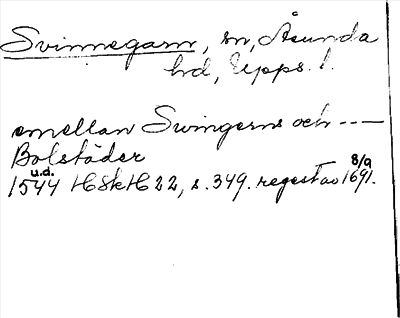 Svinnegarn, sn, Åsunda
hd, Upps. l.
emellan Swingerns och ---
Bolstäder
u.d. 8/9
1544 HSkH 22, s. 349. regest av 1691.